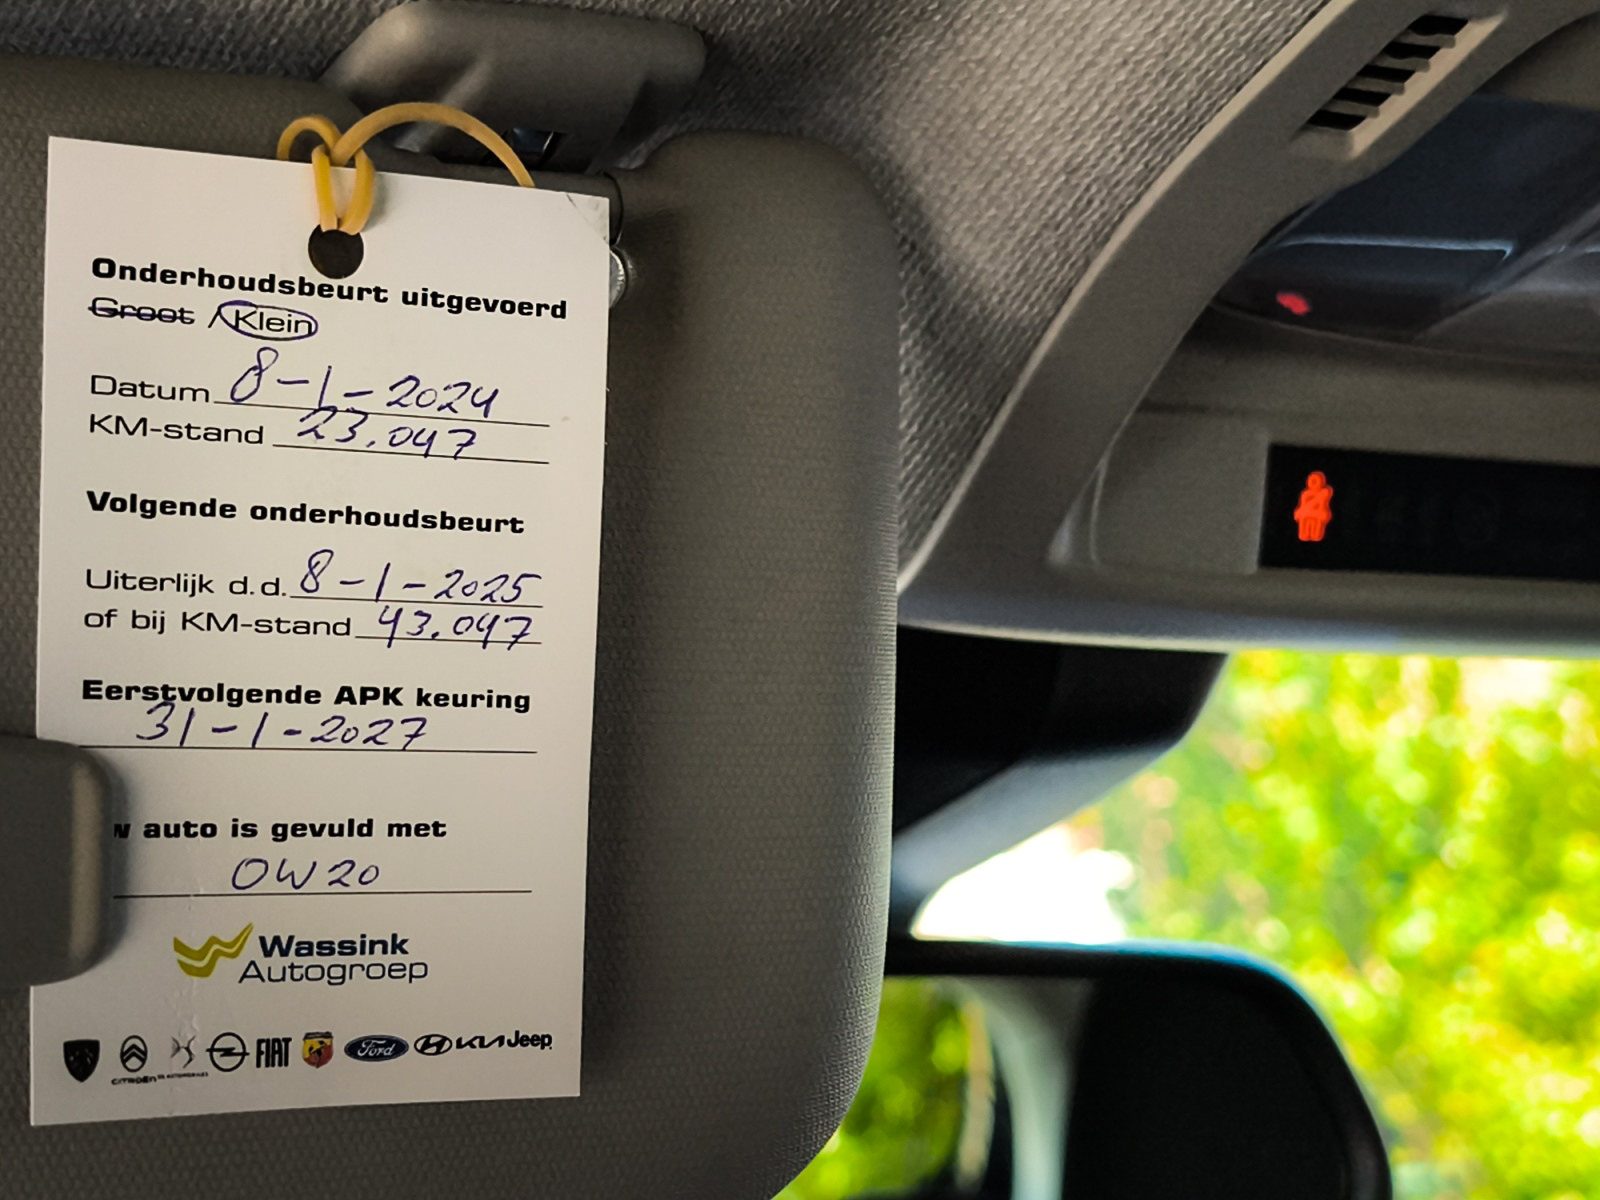 Onderhoudsbeurt uitgevoerd
Groot / Klein
Datum 8-1-2024
KM-stand 23.047
Volgende onderhoudsbeurt
Uiterlijk d.d. 8-1-2025
of bij KM-stand 43.047
Eerstvolgende APK keuring
31-1-2027
w auto is gevuld met
0W20
Wassink
Autogroep
CITROËN DS AUTOMOBILES FIAT Ford KIA Jeep